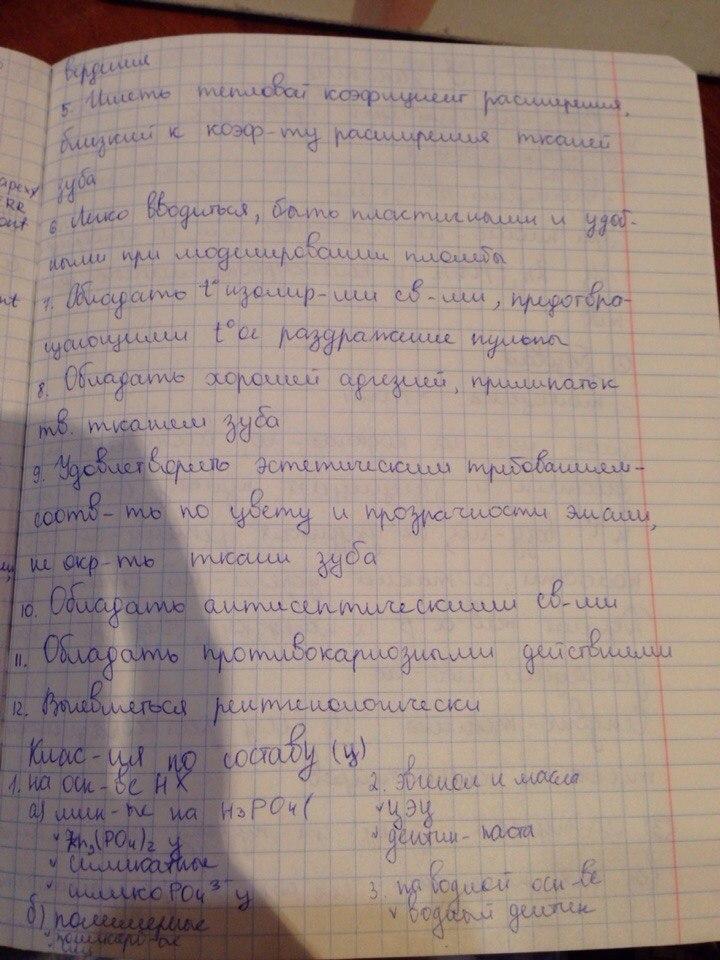 вердение
5. Иметь тепловой коэфициент расширения,
близкий к коэф-ту расширения тканей
зуба
6 Легко вводиться, быть пластичными и удоб-
ными при моделировании пломбы
7. Обладать t° изолир-ми св-ми, предотвра-
щающими t°ое раздражение пульпы
8. Обладать хорошей адгезией, прилипать к
тв. тканям зуба
9. Удовлетворять эстетическим требованием-
соотв-ть по цвету и прозрачности эмали,
не окр-ть ткани зуба
10. Обладать антисептическими св-ми
11. Обладать противокариозными действиями
12. Выевляеться рентгенологически
Клас-ия по составу (ц)
1. на осн-ве НХ
а) мин-ые на H3PO4(
Zn3(PO4)2 ц
силикатные
силико PO4 3- ц
б) полимерные
2. эвгенол и масла
ЦЭЦ
дентин-паста
3. на водной осн-ве
водный дентин